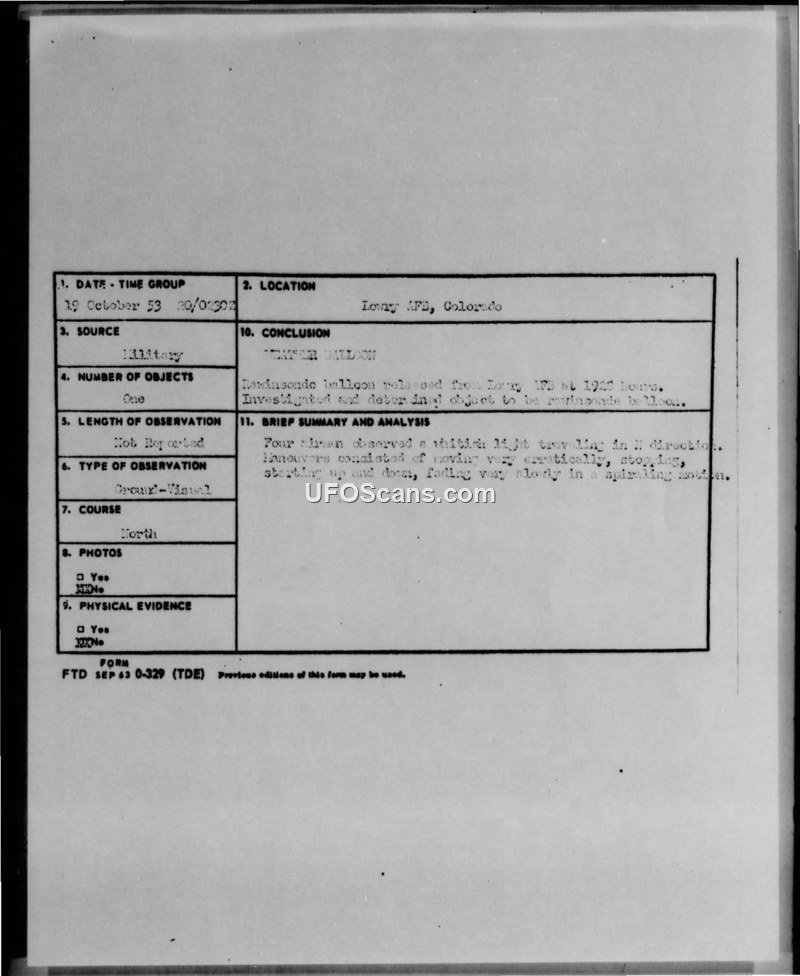 1. DATE - TIME GROUP
19 October 53 20/0230Z
2. LOCATION
Lowry AFB, Colorado
3. SOURCE
Military
10. CONCLUSION
WEATHER BALLOON
Rawinsonde balloon released from Lowry AFB at hours.
Investigated and determined object to be rawinsonde balloon.
4. NUMBER OF OBJECTS
One
5. LENGTH OF OBSERVATION
Not Reported
11. BRIEF SUMMARY AND ANALYSIS
Four airmen observed a whitish light traveling in N direction.
Maneuvers consisted of moving very erratically, stopping,
starting up and down, fading very slowly in a spiraling motion.
6. TYPE OF OBSERVATION
Ground-Visual
UFOScans.com
7. COURSE
North
8. PHOTOS
□ Yes
XXNo
9. PHYSICAL EVIDENCE
□ Yes
XXNo
FORM
FTD SEP 63 0-329 (TDE) Previous editions of this form may be used.